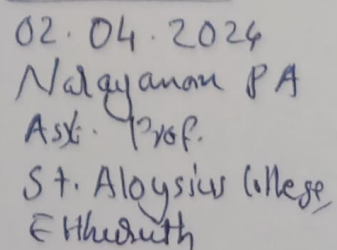 02.04.2024
Narayanan P A
Asst. Prof.
St. Aloysius College,
Elthuruth